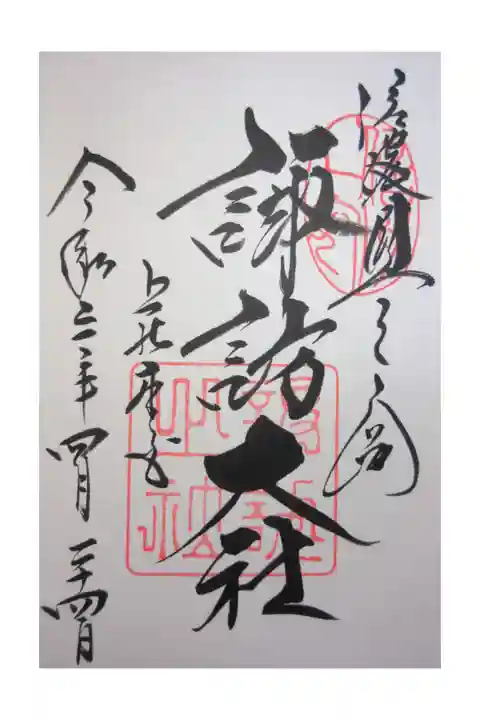 信濃国一之宮
諏訪大社
上社本宮
令和三年四月二十四日